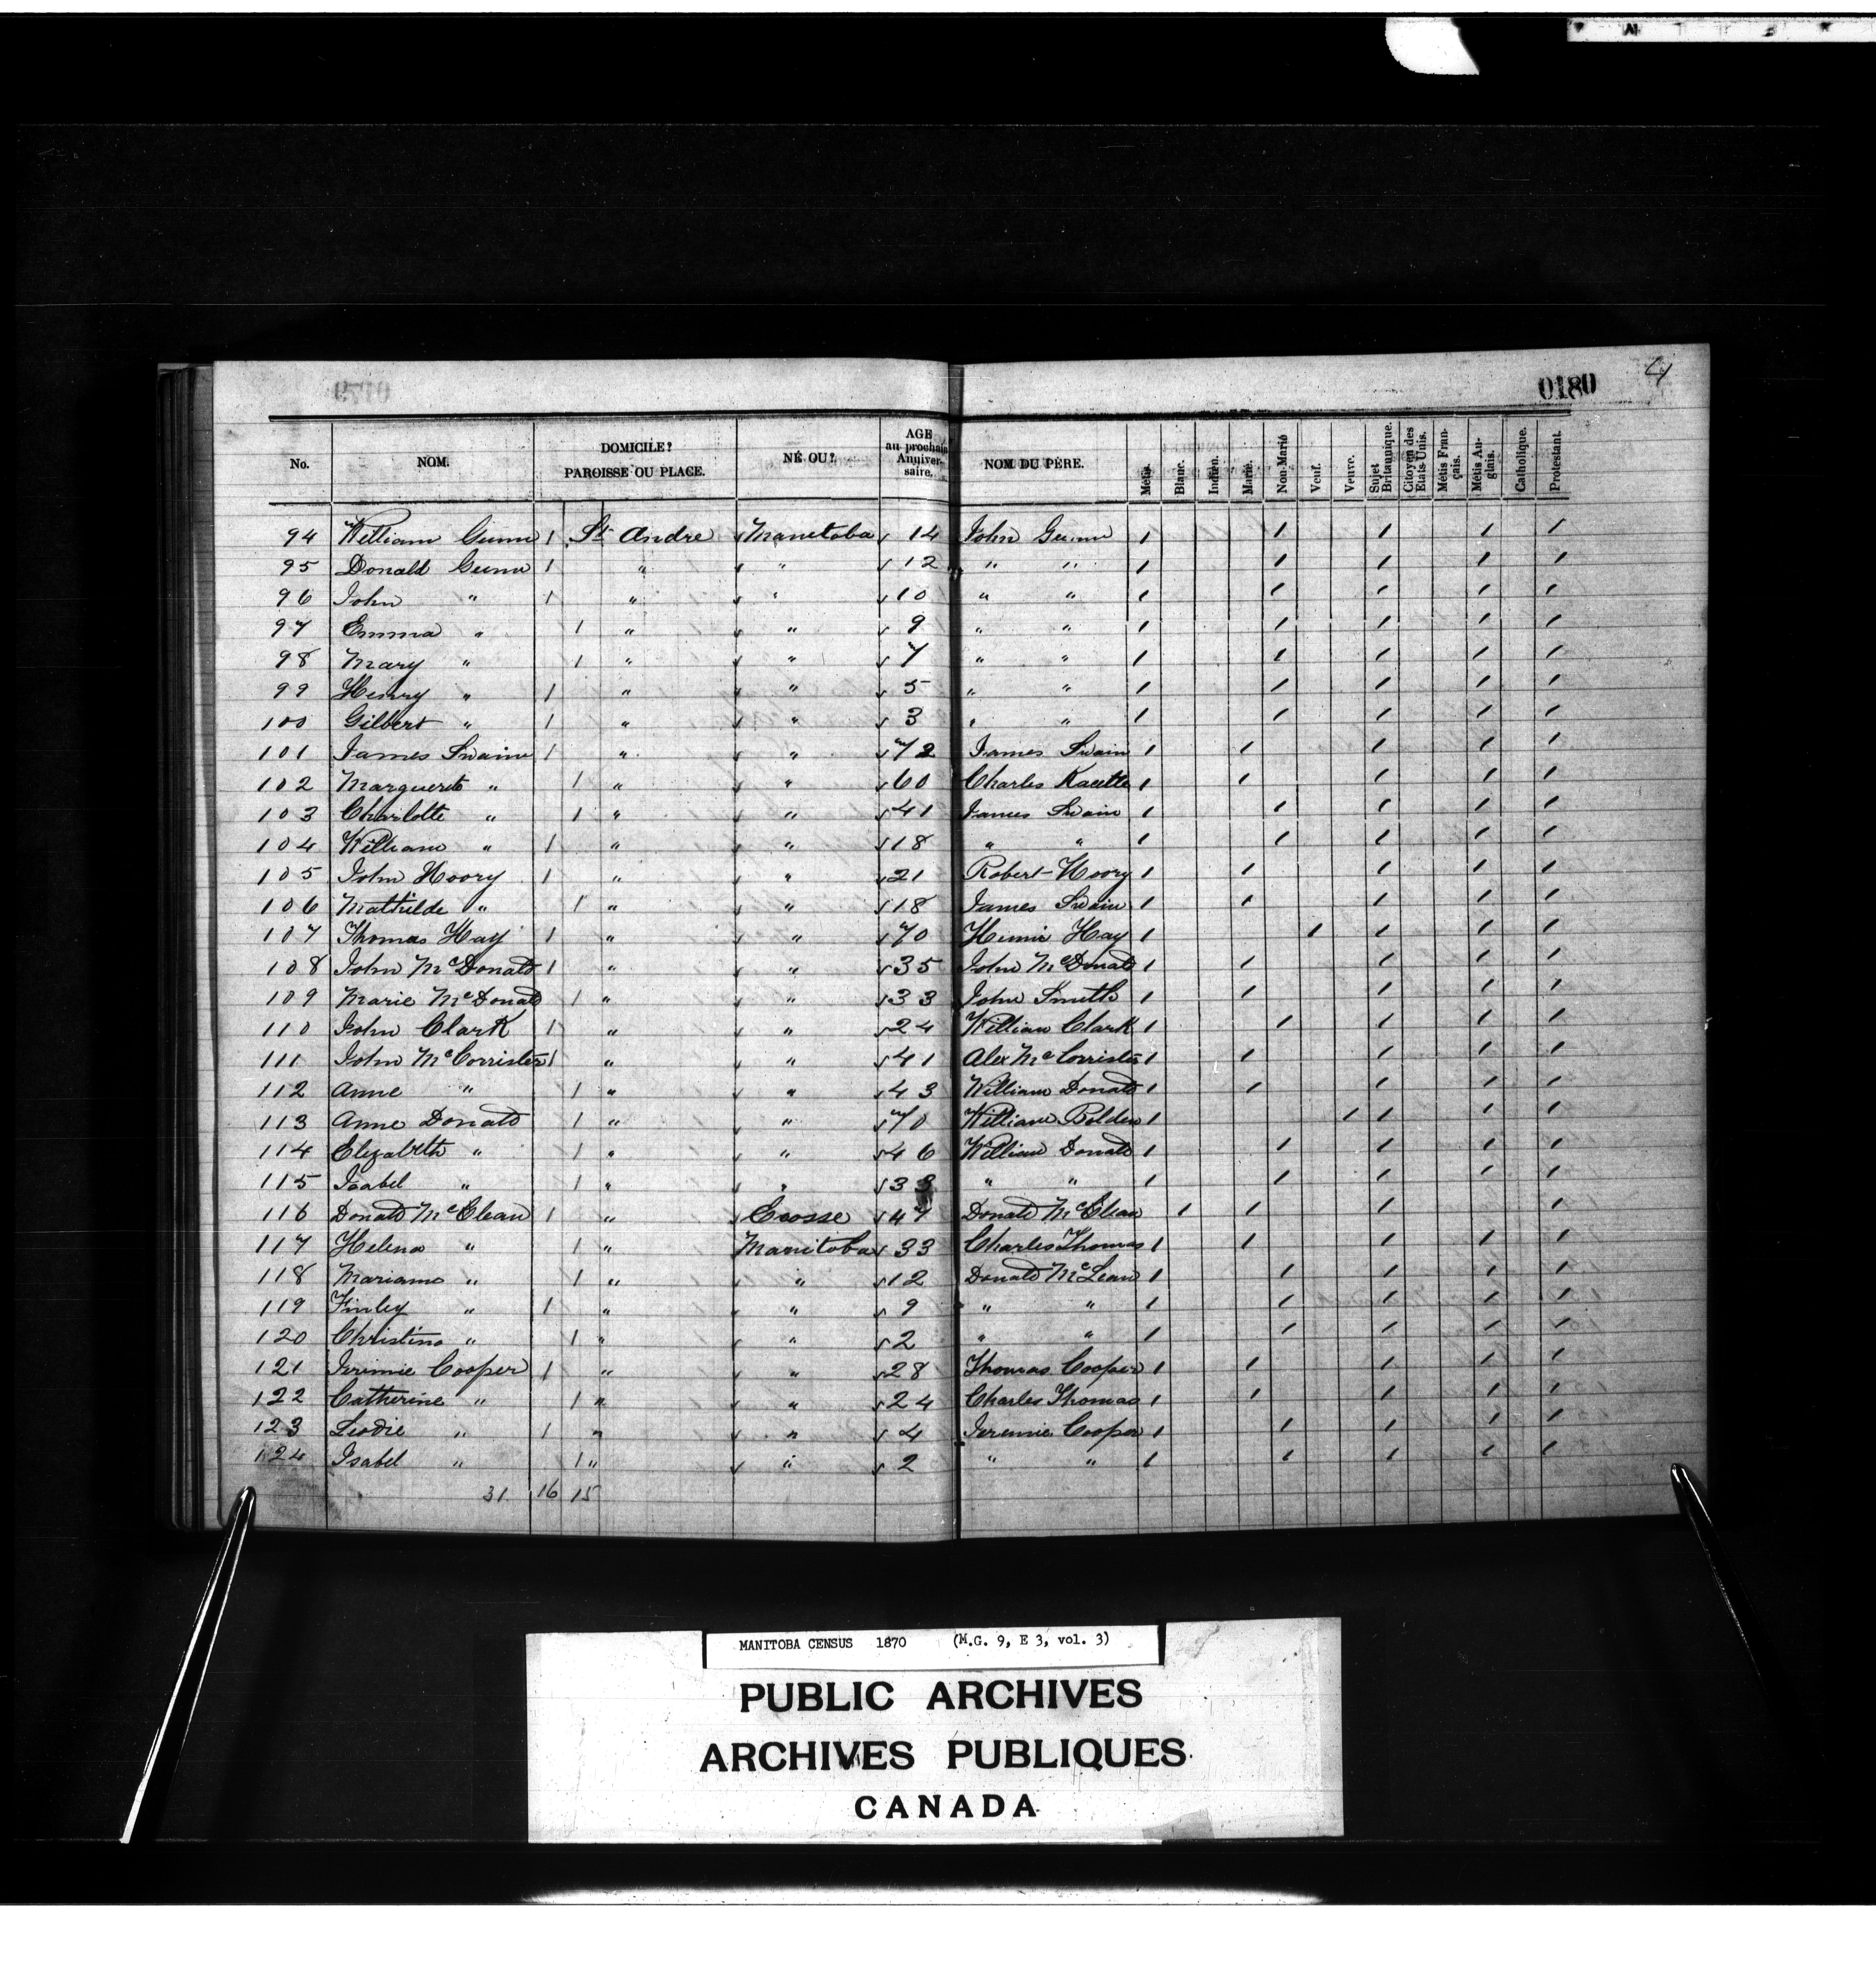 0180 4
No. NOM. DOMICILE? PAROISSE OU PLACE. NÉ OU? AGE au prochain Anniversaire. NOM DU PÈRE. Métis. Blanc. Indien. Marié. Non-Marié Veuf. Veuve. Sujet Britannique. Citoyen des Etats-Unis. Métis Français. Métis Anglais. Catholique. Protestant.
94 William Gunn 1 St Andre Manitoba 14 John Gunn 1 1 1 1 1
95 Donald Gunn 1 " " 12 " " 1 1 1 1 1
96 John " 1 " " 10 " " 1 1 1 1 1
97 Emma " 1 " " 9 " " 1 1 1 1 1
98 Mary " 1 " " 7 " " 1 1 1 1 1
99 Henry " 1 " " 5 " " 1 1 1 1 1
100 Gilbert " 1 " " 3 " " 1 1 1 1 1
101 James Swain 1 " " 72 James Swain 1 1 1 1 1
102 Marguerite " 1 " " 60 Charles Racette 1 1 1 1 1
103 Charlotte " 1 " " 41 James Swain 1 1 1 1 1
104 William " 1 " " 18 " " 1 1 1 1 1
105 John Hoory 1 " " 21 Robert Hoory 1 1 1 1 1
106 Mathilde " 1 " " 18 James Swain 1 1 1 1 1
107 Thomas Hay 1 " " 70 Hay 1 1 1 1 1
108 John McDonald 1 " " 35 John McDonald 1 1 1 1 1
109 Marie McDonald 1 " " 33 John Smith 1 1 1 1 1
110 John Clark 1 " " 24 William Clark 1 1 1 1 1
111 John McCorrister 1 " " 41 Alex McCorrister 1 1 1 1 1
112 Anne " 1 " " 43 William Donald 1 1 1 1 1
113 Anne Donald 1 " " 70 William Bolden 1 1 1 1 1
114 Elizabeth " 1 " " 46 William Donald 1 1 1 1 1
115 Isabel " 1 " " 33 " " 1 1 1 1 1
116 Donald McClean 1 " Ecosse 47 Donald McClean 1 1 1 1
117 Helena " 1 " Manitoba 33 Charles Thomas 1 1 1 1 1
118 Mariamo " 1 " " 12 Donald McLean 1 1 1 1 1
119 Finley " 1 " " 9 " " 1 1 1 1 1
120 Christina " 1 " " 2 " " 1 1 1 1 1
121 Jeremie Cooper 1 " " 28 Thomas Cooper 1 1 1 1 1
122 Catherine " 1 " " 24 Charles Thomas 1 1 1 1 1
123 " 1 " " 4 Jeremie Cooper 1 1 1 1 1
124 Isabel " 1 " " 2 " " 1 1 1 1 1
31 16 15
MANITOBA CENSUS 1870 (M.G. 9, E 3, vol. 3)
PUBLIC ARCHIVES
ARCHIVES PUBLIQUES
CANADA